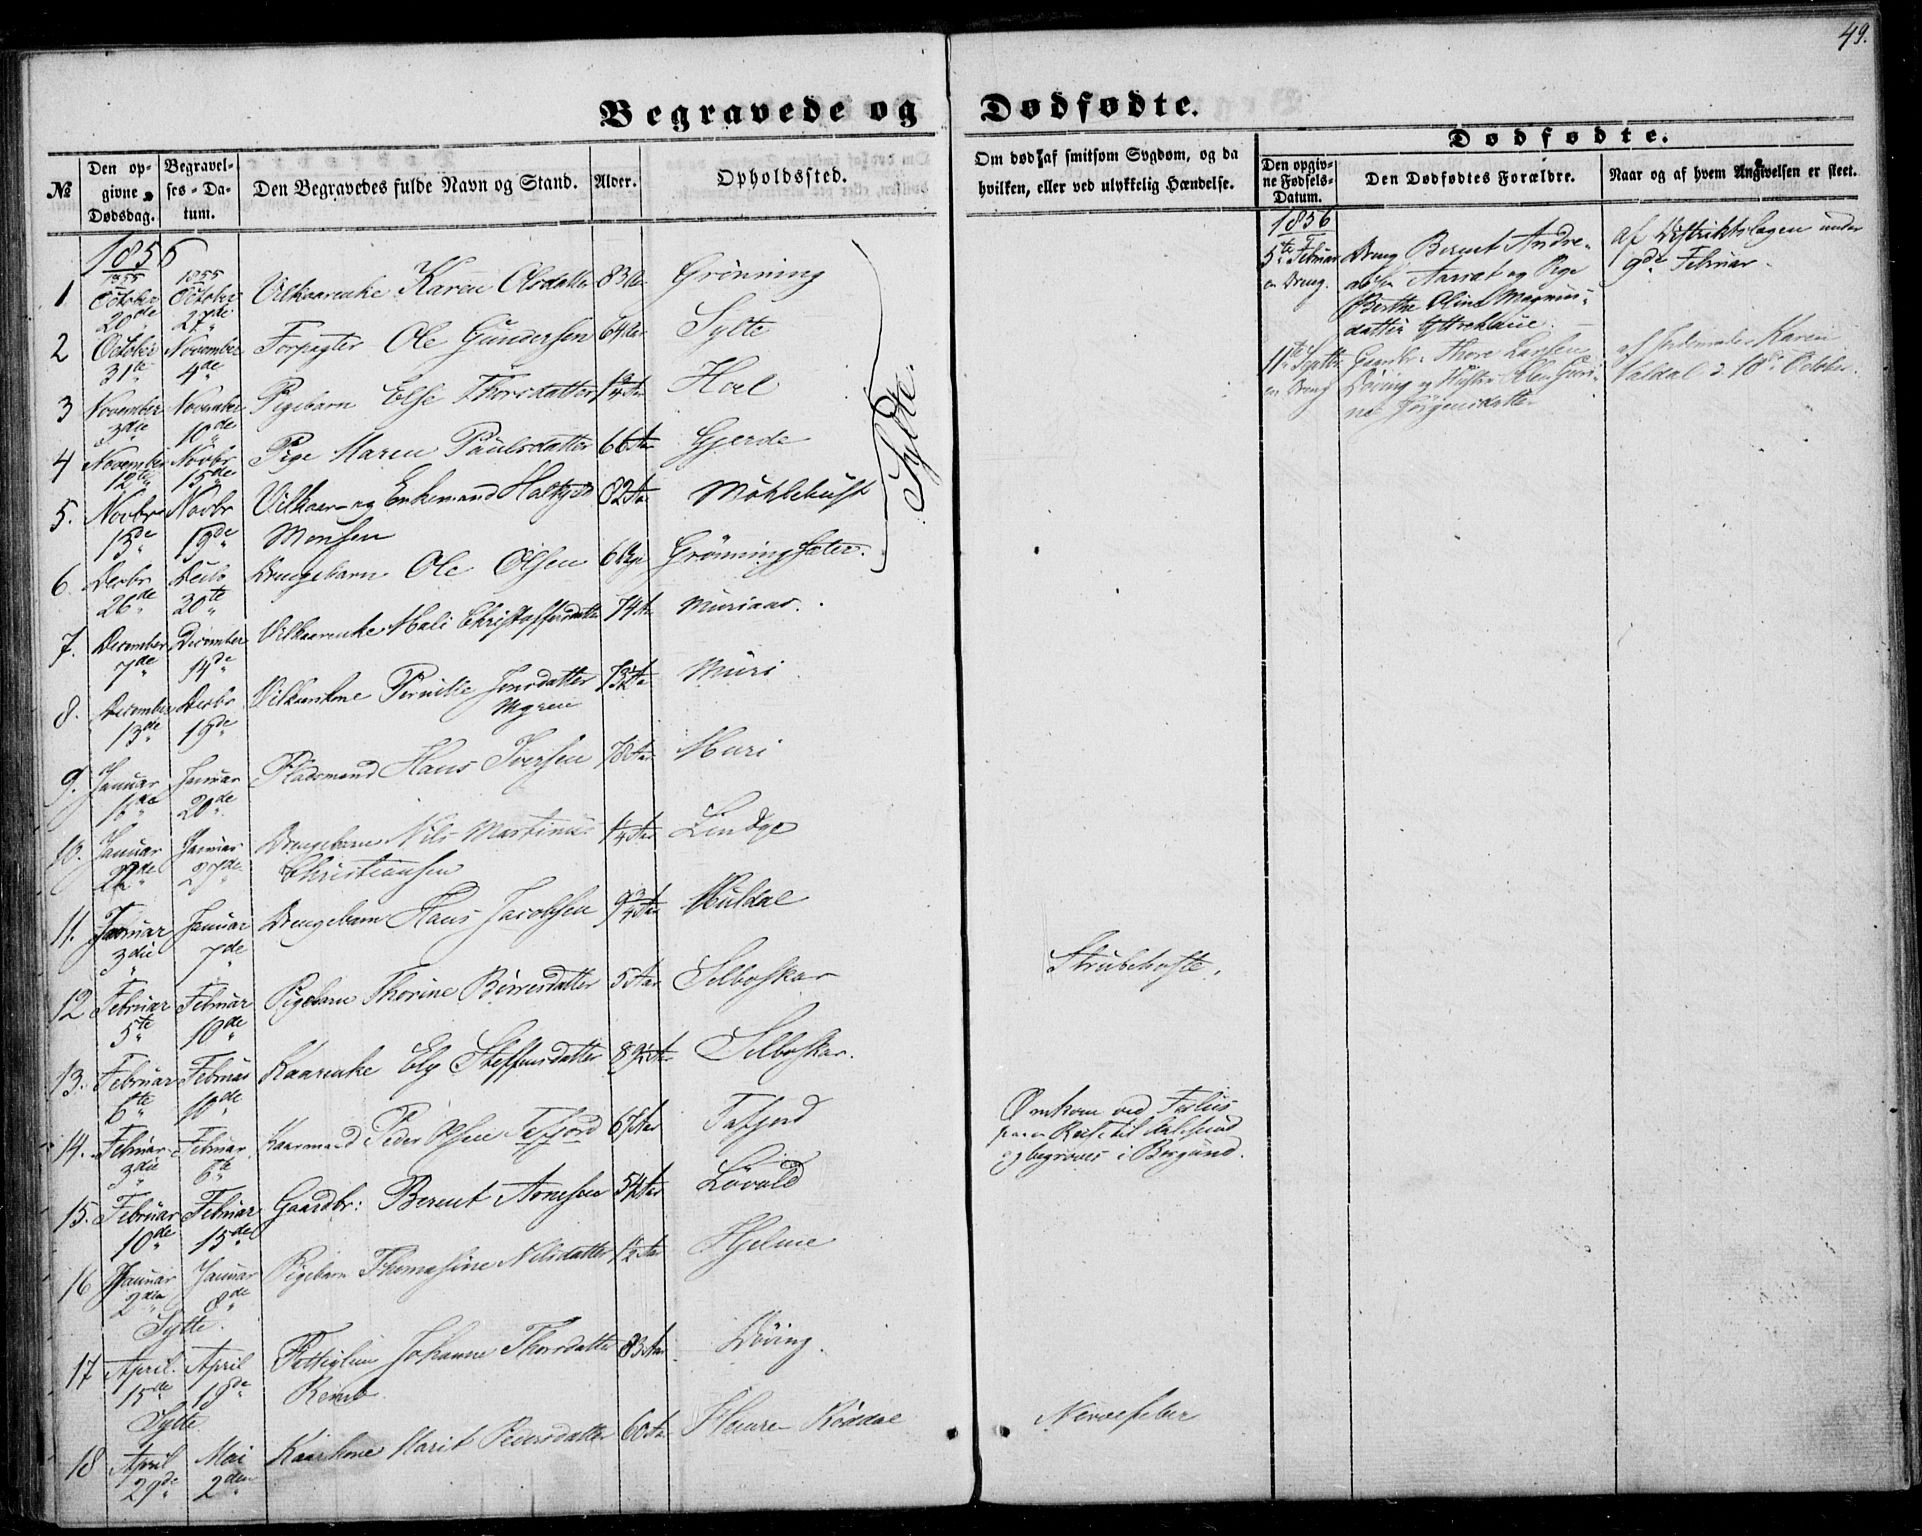 49.
Begravede og Dødfødte.
Dødfødte.
No
Den opgivne Dødsdag.
Begravelses-Datum.
Den Begravedes fulde Navn og Stand.
Alder.
Opholdssted.
Om død af smitsom Sygdom, og da hvilken, eller ved ulykkelig Hændelse.
Den opgivne Fødsels-Datum.
Den Dødfødtes Forældre.
Naar og af hvem Angivelsen er skeet.
1856
1 1855 October 20de 1855 October 27de Vilkaarenke Karen Olsdatter 83 Aar Grønning
2 October 31te November 4de Forpagter Ole Gundersen 64 Aar Sylte
3 November 3die November 10de Pigebarn Else Thorsdatter Hoel
4 November 12te Novbr 15de Pige Maren Paulsdatter 66 Aar Gjerde
5. Novbr 15de Novbr 19de Vilkaar- og Enkemand 82 Aar
Monsen
6. 26de 30te Drengebarn Ole Olsen Grønningsæter.
Sylte.
7. December 7de December 14de Vilkaarenke Mali Christoffersdatter 74 Aar Muriaas.
8. December 13de Decbr 19de Vilkaarskone Pernille Jonsdatter Muri
Myren
9. Januar 16de Januar 20de Pladsmand Hans Iversen 78 Aar Muri
10. Januar 22de Januar 27de Drengebarn Nils Martinus 1/4 Aar Lindge
Christiansen
11. Januar 3die Januar 7de Drengebarn Hans Jacobsen 9 3/4 Aar Muldal
12 Februar 5te Februar 10de Pigebarn Thorine 5 Aar Selboskar Strubehoste.
13. Februar 6te Februar 10de Kaarenke Ely Steffensdatter Selboskar.
14. Februar 3die Februar 6te Kaarmand Peder Olsen Tafjord 67 Aar Tafjord
Omkom ved Forliis
paa en Reise til Aalesund
og begraves i Borgund.
15. Februar 10de Februar 15de Gaardbr: Berent Arnesen 54 Aar Løvold
16 Januar 2den Januar 8de Pigebarn Thomasine Nilsdatter 1/2 Aar Hjelme
Sylte.
17 April 15de April 19de Johanne Thorsdatter 83 Aar Døving.
Sylte.
18 April 29de Mai 2den Kaarkone Marit 60 Aar Nervefeber
1856
5te Februar
en Dreng.
Dreng Berent Andre-
assen Aarset og Pige
Berthe Oline Magnus-
datter
af Distriktslægen under
9de Februar.
11te Septbr
en Dreng
Gaardbr: Thore Larsen
Døving og Hustru
Jørgensdatter
af Jordemoder Karen
Valdal d. 18de October.